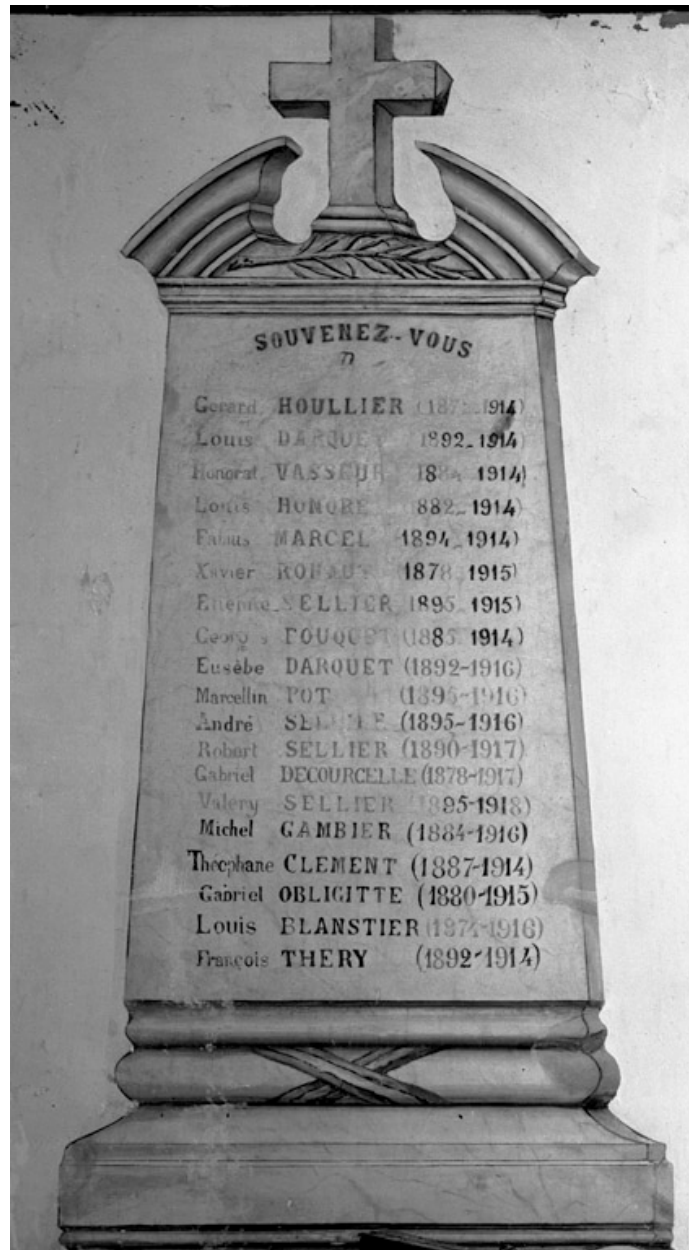 SOUVENEZ-VOUS
Gérard HOULLIER (187 -1914)
Louis DARQUET 1892-1914
Honorat VASSEUR 1884 1914)
Louis HONORÉ 882-1914
Fabius MARCEL 1894-1914)
Xavier 1878 1915)
Etienne SELLIER 1895 1915)
Georges FOUQUET (1885 1914)
Eusèbe DARQUET (1892-1916)
Marcellin POT (1895-1916)
André (1895-1916)
Robert SELLIER (1890-1917)
Gabriel DECOURCELLE (1878-1917)
Valéry SELLIER (1895-1918)
Michel GAMBIER (1884-1916)
Théophane CLEMENT (1887-1914)
Gabriel OBLIGITTE (1880-1915)
Louis BLANSTIER (1874-1916)
François THERY (1892-1914)